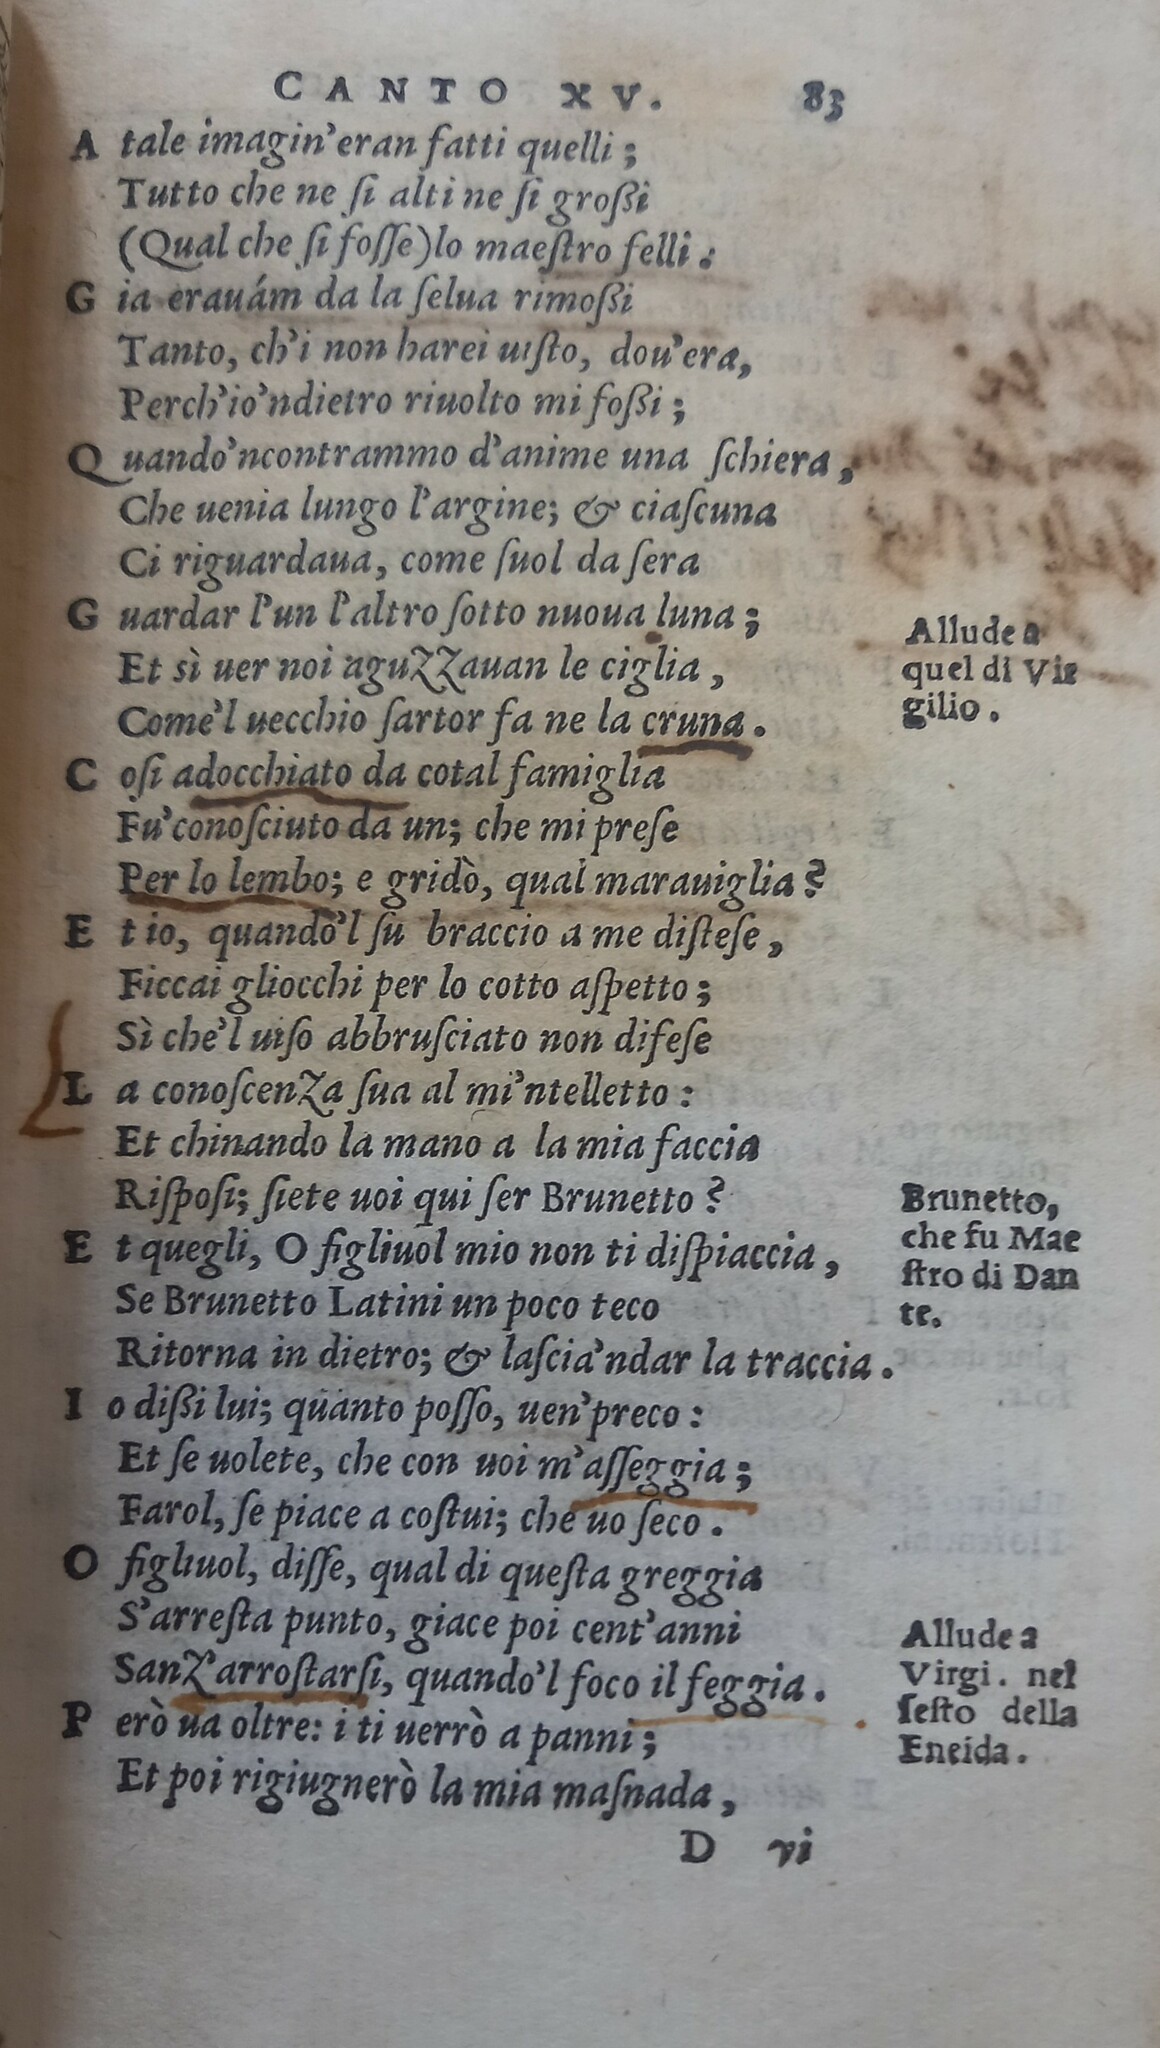 CANTO XV. 83
A tale imagin'eran fatti quelli;
Tutto che ne ſi alti ne ſi großi
(Qual che ſi foſſe) lo maeſtro felli.
G ia erauám da la ſelua rimoßi
Tanto, ch'i non harei uiſto, dou'era,
Perch'io'ndietro riuolto mi foßi;
Q uando'ncontrammo d'anime una ſchiera,
Che uenia lungo l'argine; & ciaſcuna
Ci riguardaua, come ſuol da ſera
G uardar l'un l'altro ſotto nuoua luna;
Et sì uer noi aguZZauan le ciglia,
Come'l uecchio ſartor fa ne la cruna.
Allude a
quel di Vir
gilio.
C oſi adocchiato da cotal famiglia
Fu'conoſciuto da un; che mi preſe
Per lo lembo; e gridò, qual marauiglia?
E t io, quando'l ſu braccio a me diſteſe,
Ficcai gliocchi per lo cotto aſpetto;
Sì che'l uiſo abbruſciato non difeſe
L a conoſcenZa ſua al mi'ntelletto:
Et chinando la mano a la mia faccia
Riſpoſi; ſiete uoi qui ſer Brunetto?
E t quegli, O figliuol mio non ti diſpiaccia,
Se Brunetto Latini un poco teco
Ritorna in dietro; & laſcia'ndar la traccia.
Brunetto,
che fu Mae
ſtro di Dan
te.
I o dißi lui; quanto poſſo, uen'preco:
Et ſe uolete, che con uoi m'aſſeggia;
Farol, ſe piace a coſtui; che uo ſeco.
O figliuol, diſſe, qual di queſta greggia
S'arreſta punto, giace poi cent'anni
SanZ'arroſtarſi, quando'l foco il feggia.
P erò ua oltre: i ti uerrò a panni;
Et poi rigiugnerò la mia maſnada,
Allude a
Virgi. nel
ſeſto della
Eneida.
D vi